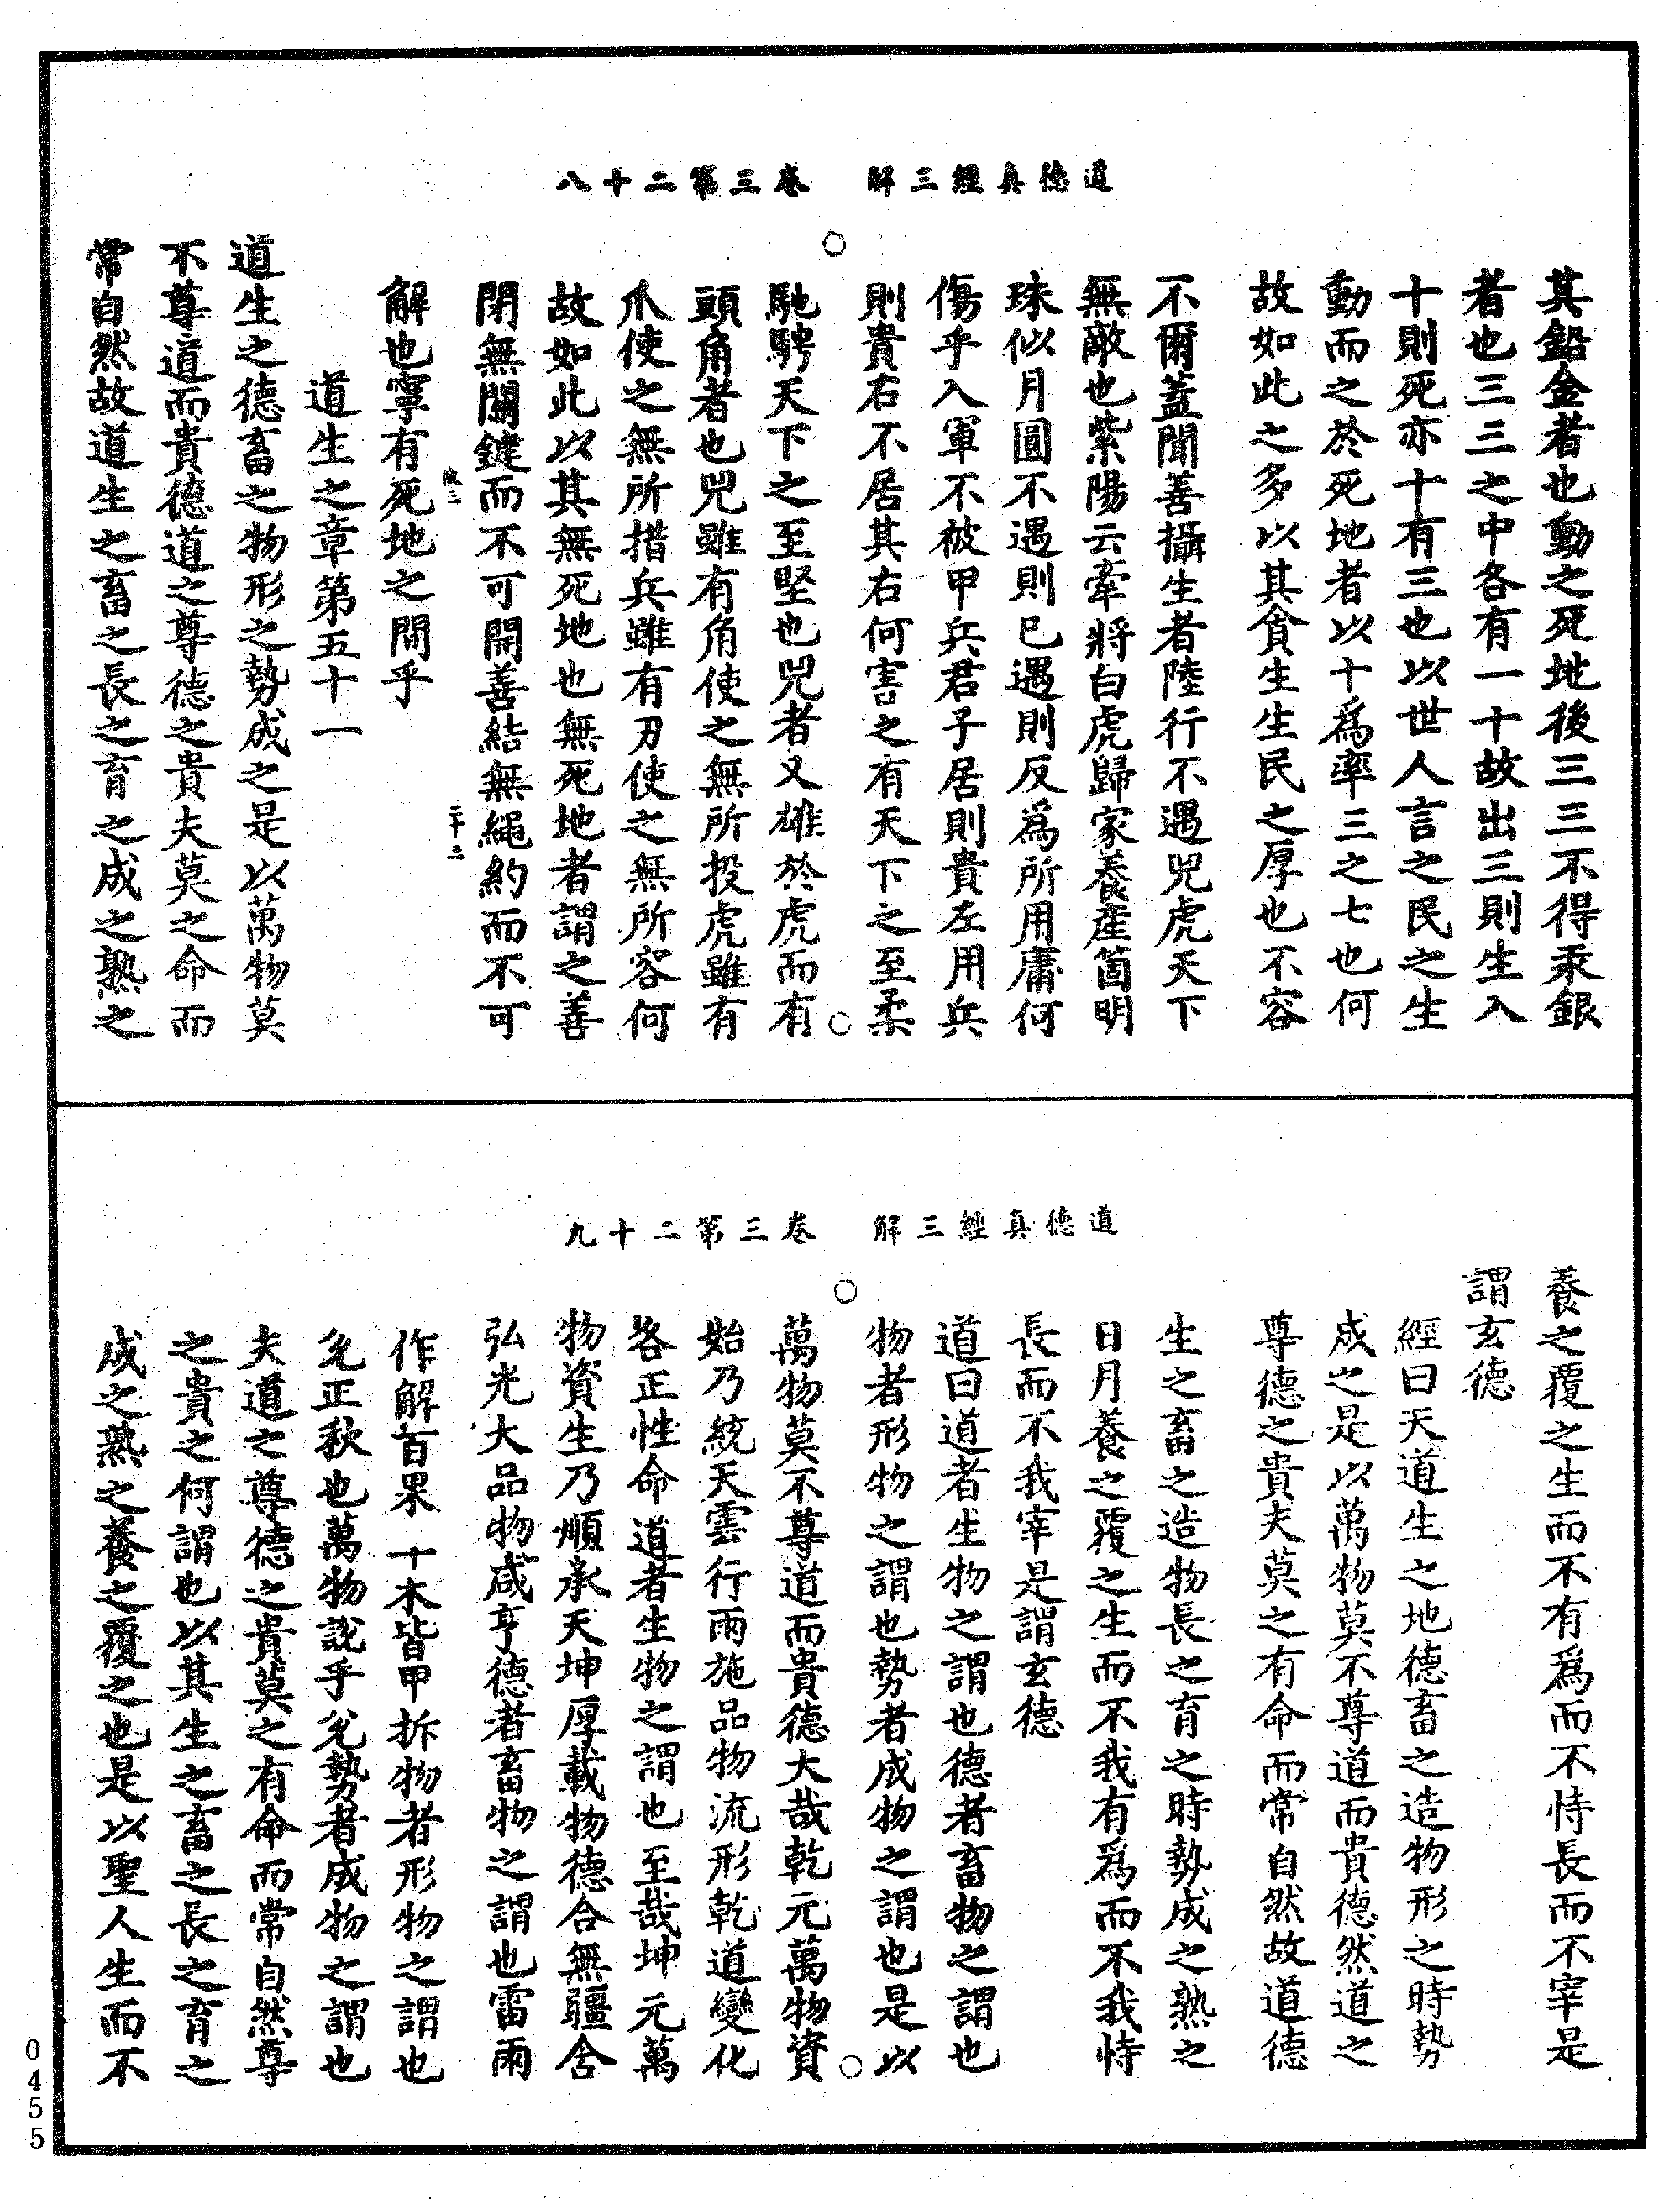 道德真經三解　卷三第二十八
其鉛金者也動之死地後三三不得汞銀
者也三三之中各有一十故出三則生入
十則死亦十有三也以世人言之民之生
動而之於死地者以十爲率三之七也何
故如此之多以其貪生生民之厚也不容
不爾蓋聞善攝生者陸行不遇兕虎天下
無敵也紫陽云牽將白虎歸家養產箇明
珠似月圓不遇則已遇則反爲所用庸何
傷乎入軍不被甲兵君子居則貴左用兵
則貴右不居其右何害之有天下之至柔
馳騁天下之至堅也兕者又雄於虎而有
頭角者也兕雖有角使之無所投虎雖有
爪使之無所措兵雖有刃使之無所容何
故如此以其無死地也無死地者謂之善
閉無關鍵而不可開善結無繩約而不可
解也寧有死地之間乎
道生之章第五十一
道生之德畜之物形之勢成之是以萬物莫
不尊道而貴德道之尊德之貴夫莫之命而
常自然故道生之畜之長之育之成之熟之
道德真經三解　卷三第二十九
養之覆之生而不有爲而不恃長而不宰是
謂玄德
經曰天道生之地德畜之造物形之時勢
成之是以萬物莫不尊道而貴德然道之
尊德之貴夫莫之有命而常自然故道德
生之畜之造物長之育之時勢成之熟之
日月養之覆之生而不我有爲而不我恃
長而不我宰是謂玄德
道曰道者生物之謂也德者畜物之謂也
物者形物之謂也勢者成物之謂也是以
萬物莫不尊道而貴德大哉乾元萬物資
始乃統天雲行雨施品物流形乾道變化
各正性命道者生物之謂也至哉坤元萬
物資生乃順承天坤厚載物德合無疆含
弘光大品物咸亨德者畜物之謂也雷雨
作解百果十木皆甲拆物者形物之謂也
兌正秋也萬物說乎兌勢者成物之謂也
夫道之尊德之貴莫之有命而常自然尊
之貴之何謂也以其生之畜之長之育之
成之熟之養之覆之也是以聖人生而不
0455